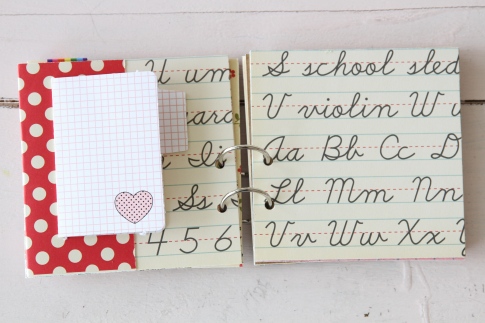 U um
Ii
Ss
4 5 6
S school sled
V violin W
Aa Bb Cc D
Ll Mm Nn
Vv Ww Xx